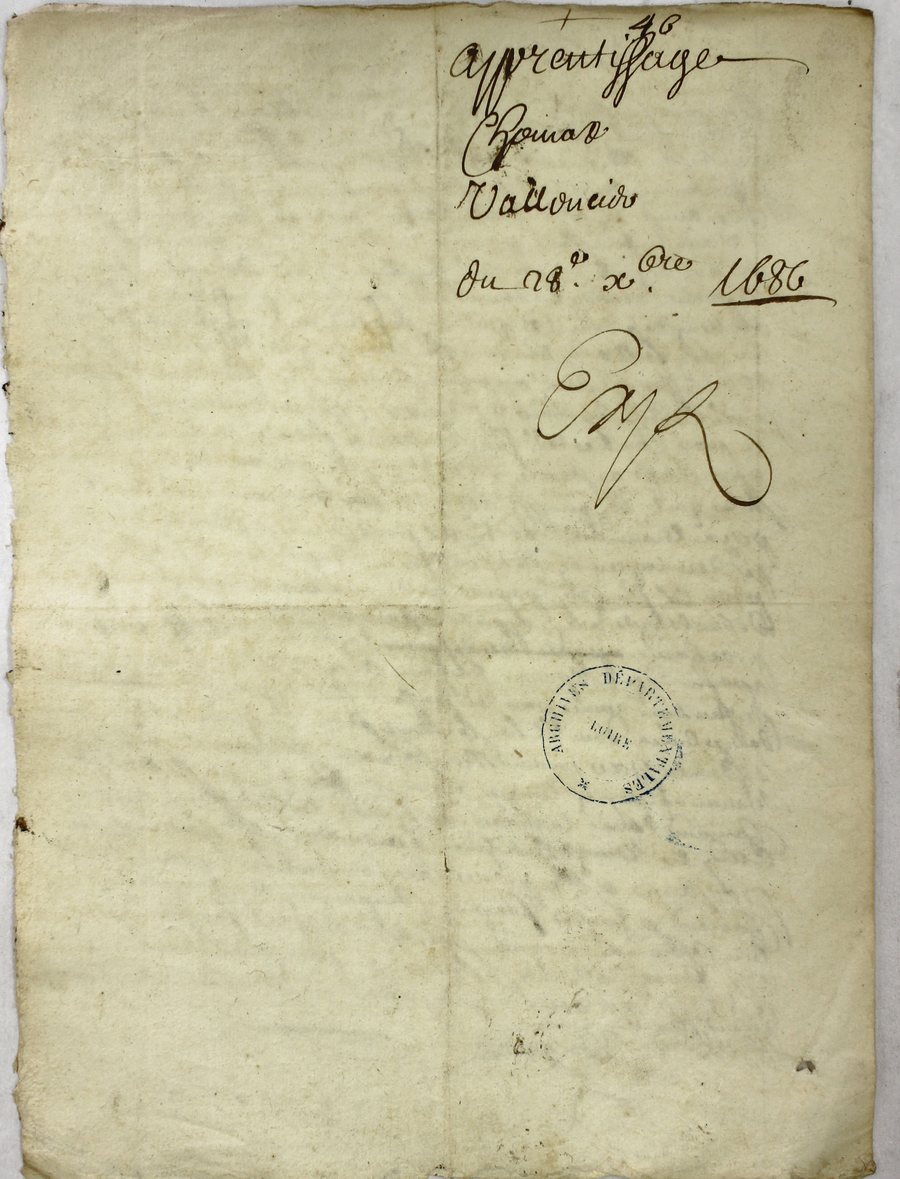 46
apprentissage
Chomat
Valloucid
du 28e. xbre. 1686
Exp
ARCHIVES DÉPARTEMENTALES
LOIRE